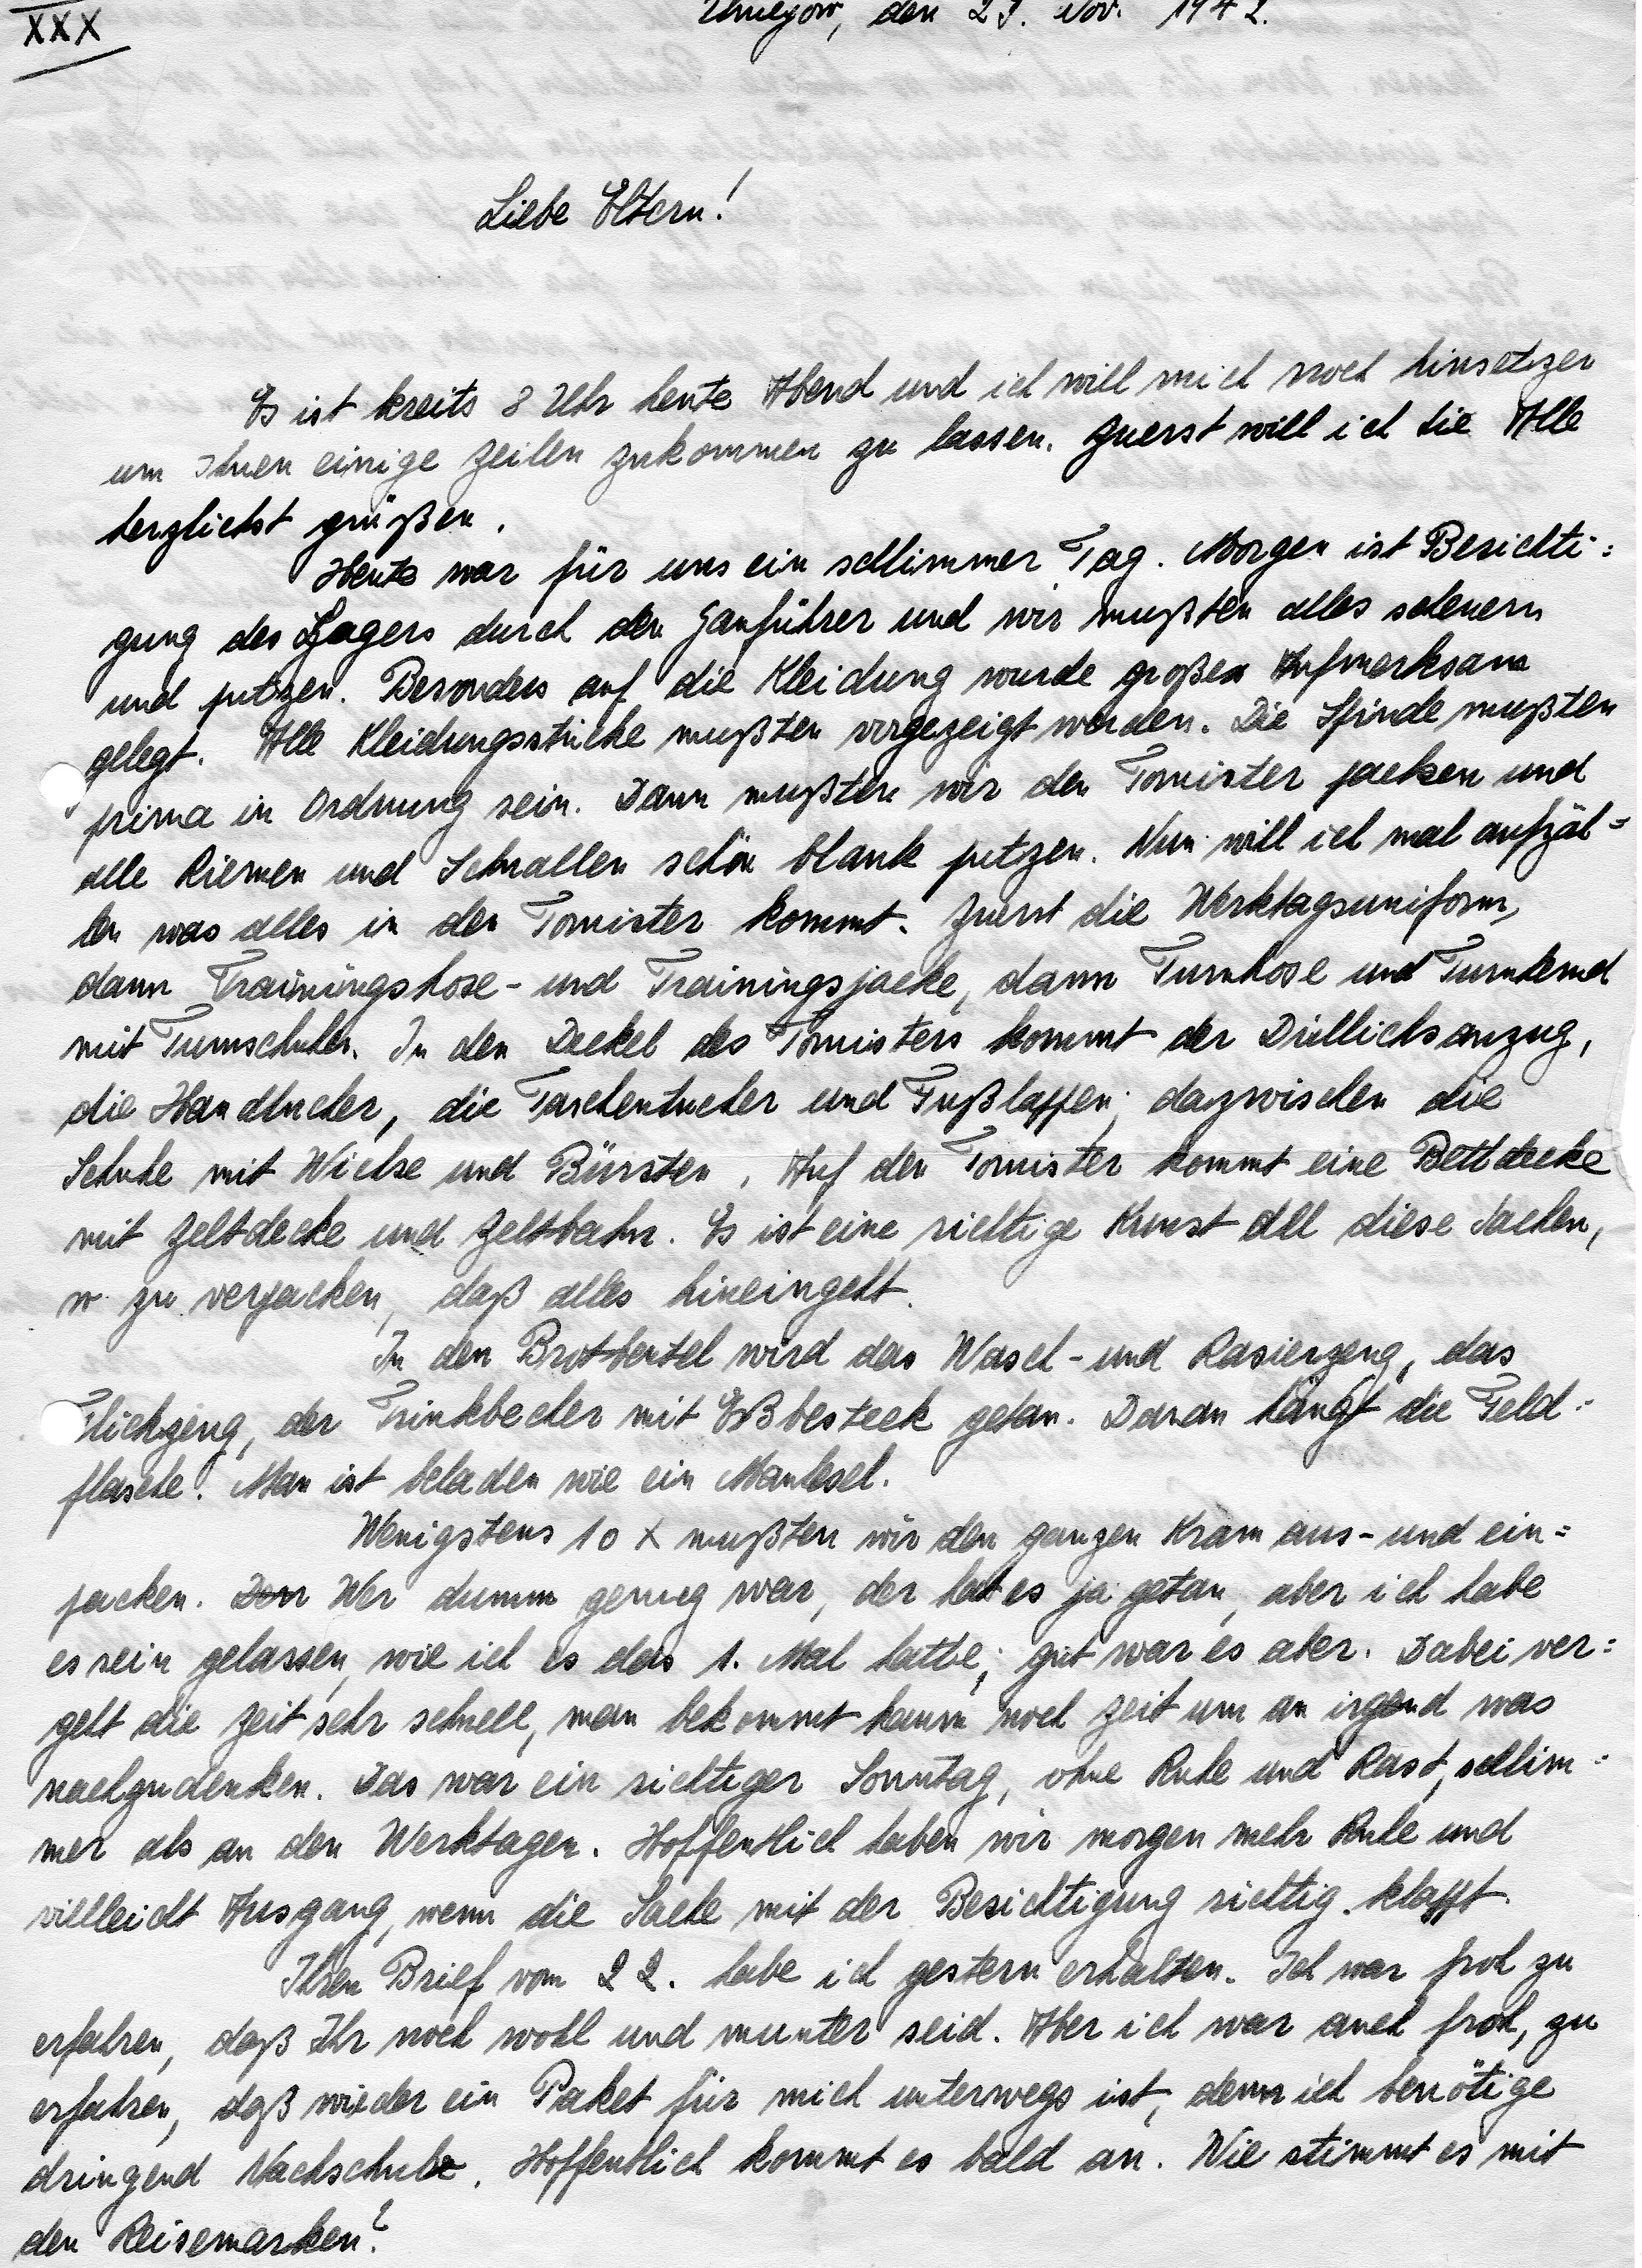 XXX
den 29. Nov. 1942.
Liebe Eltern!
Es ist bereits 8 Uhr heute Abend und ich will mich noch hinsetzen
um Ihnen einige Zeilen zukommen zu lassen. Zuerst will ich Sie Alle
herzlichst grüßen.
Heute war für uns ein schlimmer Tag. Morgen ist Besichti=
gung des Lagers durch den Gauführer und wir mußten alles scheuern
und putzen. Besonders auf die Kleidung wurde großen Aufmerksam
gelegt. Alle Kleidungsstücke mußten vorgezeigt werden. Die Spinde mußten
prima in Ordnung sein. Dann mußten wir den Tornister packen und
alle Riemen und Schnallen schön blank putzen. Nun will ich mal aufzäh=
len was alles in den Tornister kommt. Zuerst die Werktagsuniform,
dann Trainingshose- und Trainingsjacke, dann Turnhose und Turnhemd
mit Turnschuhen. In den Deckel des Tornisters kommt der Drillichsanzug,
die Handtücher, die Taschentücher und Fußlappen; dazwischen die
Schuhe mit Wichse und Bürsten. Auf den Tornister kommt eine Bettdecke
mit Zeltdecke und Zeltbahn. Es ist eine richtige Kunst all diese Sachen,
so zu verpacken, daß alles hineingeht.
In den Brotbeutel wird das Wasch- und Rasierzeug, das
Flickzeug, der Trinkbecher mit Eßbesteck getan. Daran hängt die Feld=
flasche. Man ist beladen wie ein Maulesel.
Wenigstens 10 x mußten wir den ganzen Kram aus- und ein=
packen. Wer dumm genug war, der hat es ja getan, aber ich habe
es sein gelassen, wie ich es das 1. Mal hatte; gut war es aber. Dabei ver=
geht die Zeit sehr schnell, man bekommt kaum noch Zeit um an irgend was
nachzudenken. Das war ein richtiger Sonntag, ohne Ruhe und Rast, schlim=
mer als an den Werktagen. Hoffentlich haben wir morgen mehr Ruhe und
vielleicht Ausgang, wenn die Sache mit der Besichtigung richtig klappt.
Ihren Brief vom 22. habe ich gestern erhalten. Ich war froh zu
erfahren, daß Ihr noch wohl und munter seid. Aber ich war auch froh, zu
erfahren, daß wieder ein Paket für mich unterwegs ist, denn ich benötige
dringend Nachschub. Hoffentlich kommt es bald an. Wie stimmt es mit
den Reisemarken?